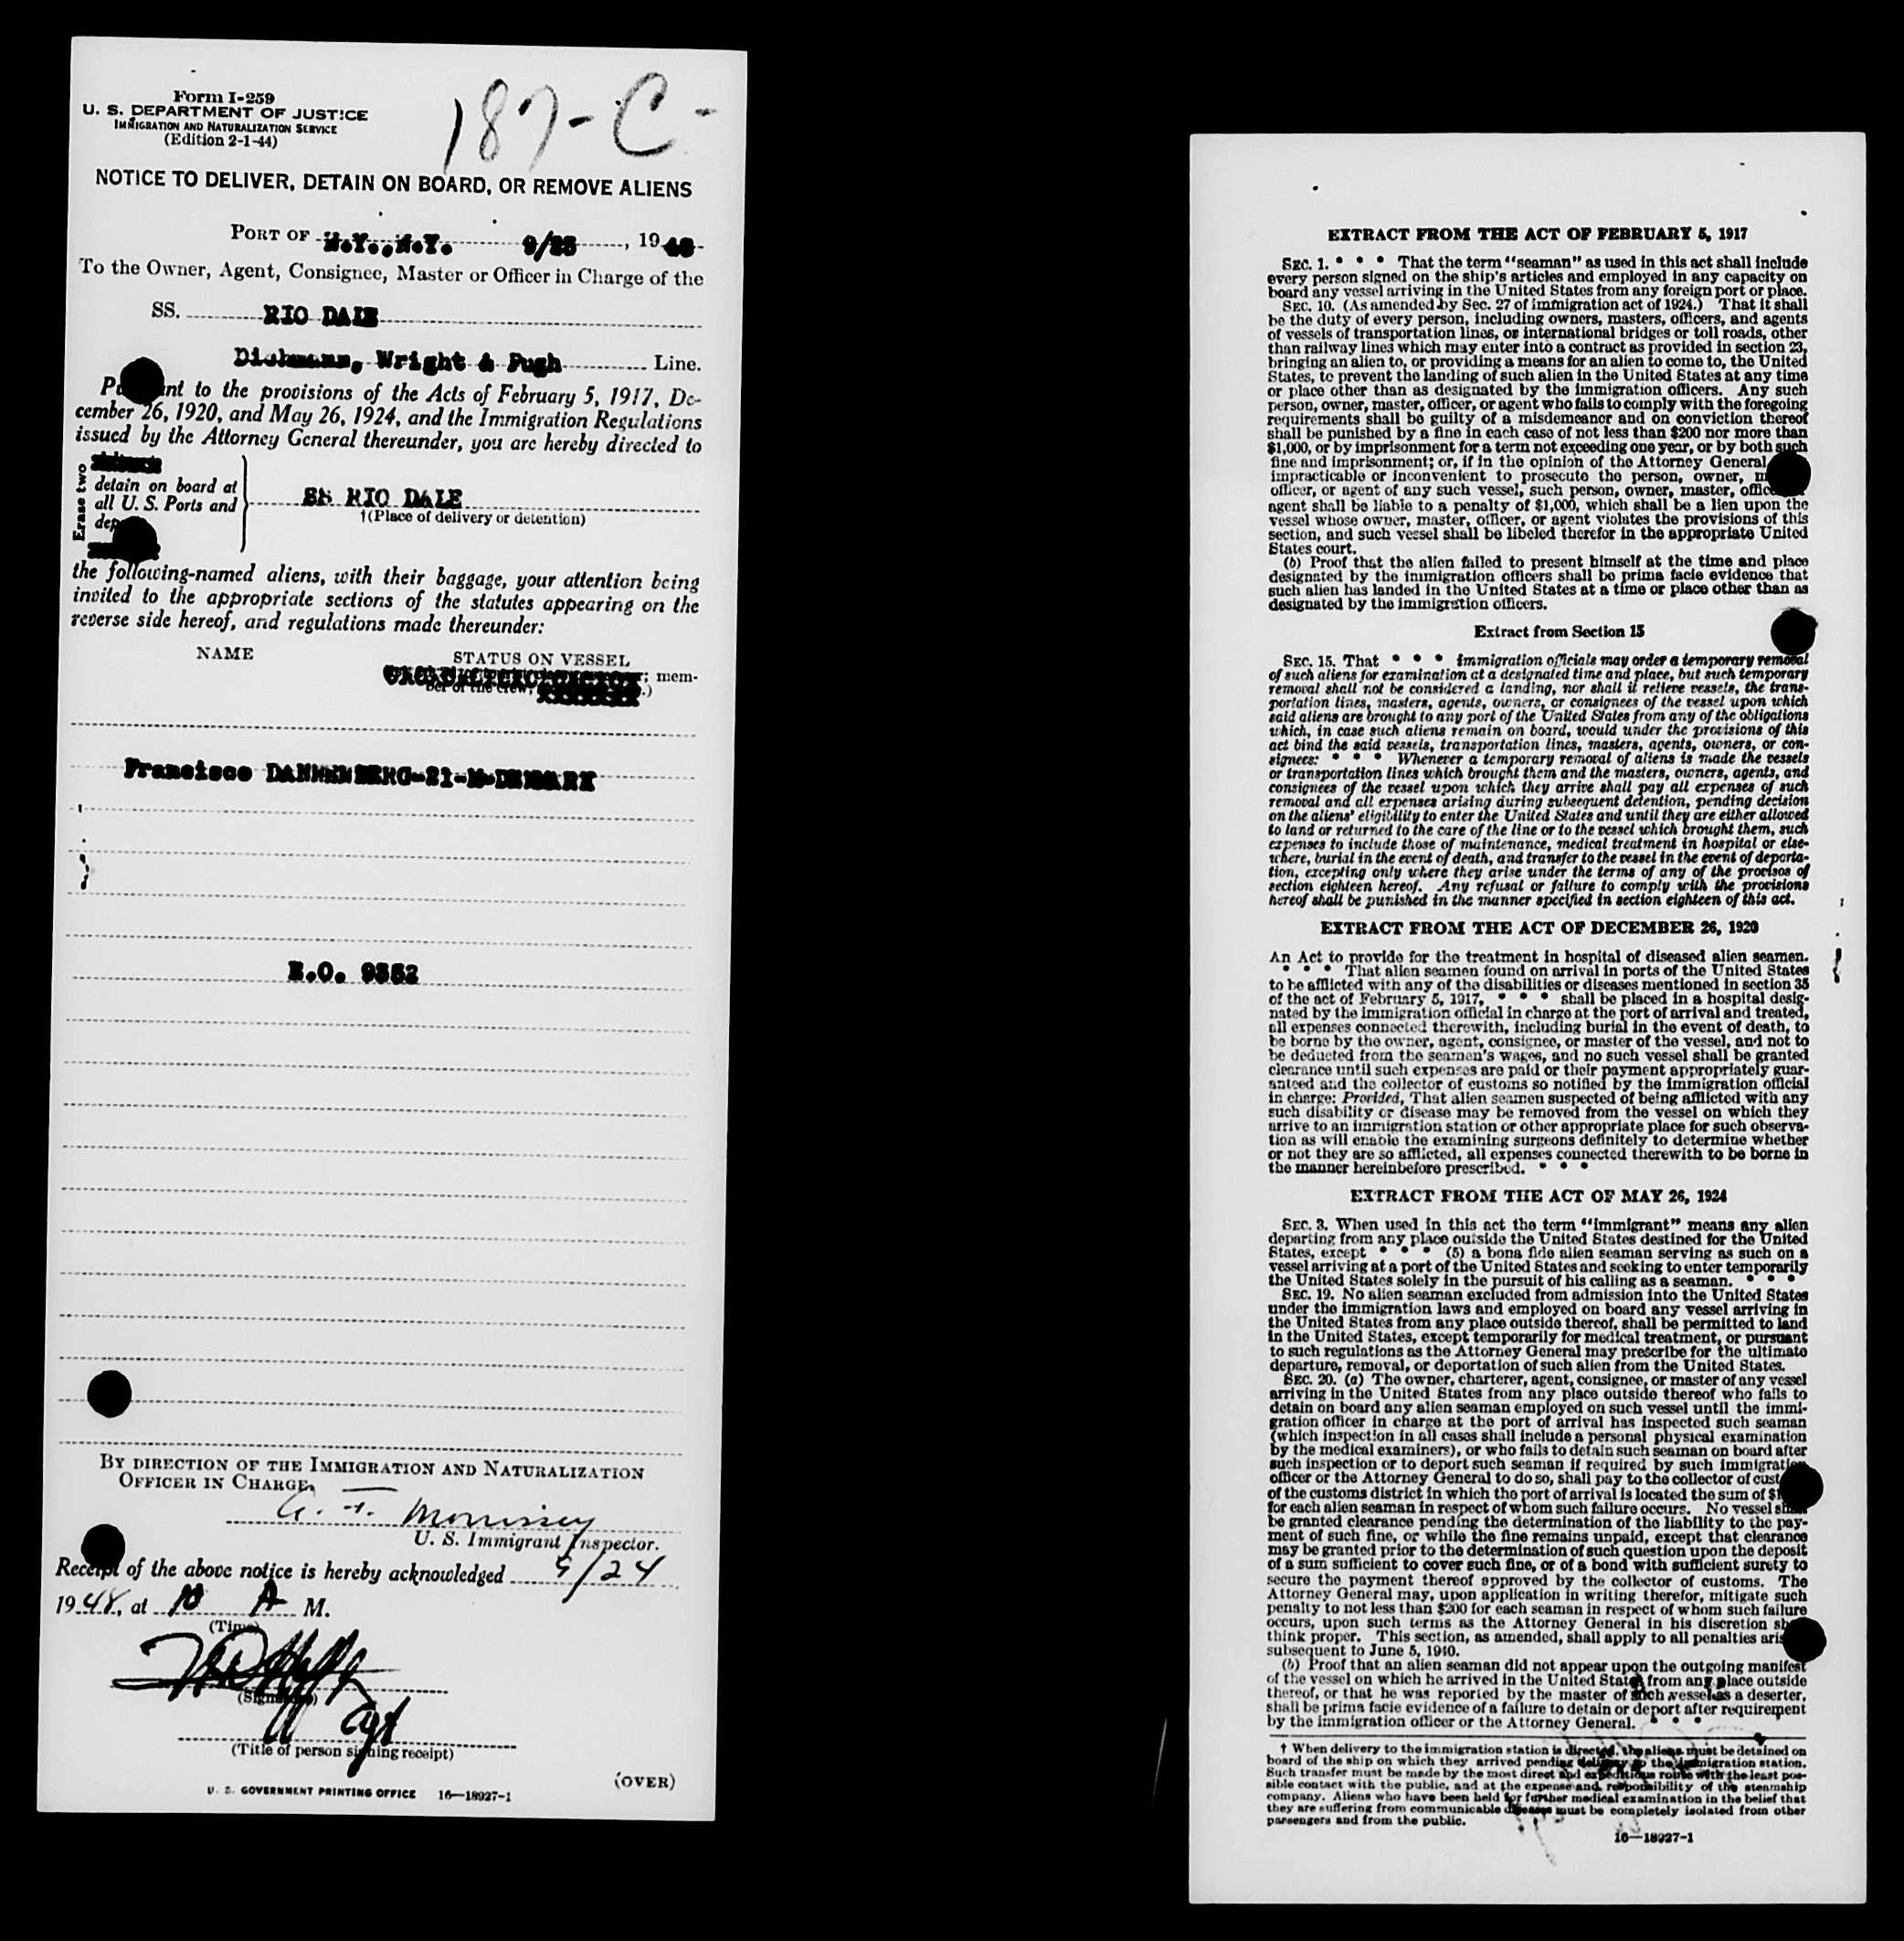 Form I-259
U. S. DEPARTMENT OF JUSTICE
IMMIGRATION AND NATURALIZATION SERVICE
(Edition 2-1-44)
187-C-
NOTICE TO DELIVER, DETAIN ON BOARD, OR REMOVE ALIENS
PORT OF N.Y., N.Y. 9/23, 1948
To the Owner, Agent, Consignee, Master or Officer in Charge of the
SS. RIO DALE
Dichmann, Wright & Pugh Line.
nt to the provisions of the Acts of February 5, 1917, De-
cember 26, 1920, and May 26, 1924, and the Immigration Regulations
issued by the Attorney General thereunder, you are hereby directed to
Erase two
detain on board at
all U. S. Ports and
SS RIO DALE
†(Place of delivery or detention)
the following-named aliens, with their baggage, your attention being
invited to the appropriate sections of the statutes appearing on the
reverse side hereof, and regulations made thereunder:
NAME
STATUS ON VESSEL
; mem-
ber of the crew;
.)
Francisco DANNENBERG-21-M-DENMARK
E.O. 9352
BY DIRECTION OF THE IMMIGRATION AND NATURALIZATION
OFFICER IN CHARGE.
Morrissey
U. S. Immigrant Inspector.
Receipt of the above notice is hereby acknowledged 9/24
1948, at 10 A M.
(Time)
(Signature)
Agt
(Title of person signing receipt)
(OVER)
U. S. GOVERNMENT PRINTING OFFICE 16—18927-1
EXTRACT FROM THE ACT OF FEBRUARY 5, 1917
SEC. 1. * * * That the term "seaman" as used in this act shall include
every person signed on the ship's articles and employed in any capacity on
board any vessel arriving in the United States from any foreign port or place.
SEC. 10. (As amended by Sec. 27 of immigration act of 1924.) That it shall
be the duty of every person, including owners, masters, officers, and agents
of vessels of transportation lines, or international bridges or toll roads, other
than railway lines which may enter into a contract as provided in section 23,
bringing an alien to, or providing a means for an alien to come to, the United
States, to prevent the landing of such alien in the United States at any time
or place other than as designated by the immigration officers. Any such
person, owner, master, officer, or agent who fails to comply with the foregoing
requirements shall be guilty of a misdemeanor and on conviction thereof
shall be punished by a fine in each case of not less than $200 nor more than
$1,000, or by imprisonment for a term not exceeding one year, or by both such
fine and imprisonment; or, if in the opinion of the Attorney General
impracticable or inconvenient to prosecute the person, owner, m
officer, or agent of any such vessel, such person, owner, master, office
agent shall be liable to a penalty of $1,000, which shall be a lien upon the
vessel whose owner, master, officer, or agent violates the provisions of this
section, and such vessel shall be libeled therefor in the appropriate United
States court.
(b) Proof that the alien failed to present himself at the time and place
designated by the immigration officers shall be prima facie evidence that
such alien has landed in the United States at a time or place other than as
designated by the immigration officers.
Extract from Section 15
SEC. 15. That * * * immigration officials may order a temporary removal
of such aliens for examination at a designated time and place, but such temporary
removal shall not be considered a landing, nor shall it relieve vessels, the trans-
portation lines, masters, agents, owners, or consignees of the vessel upon which
said aliens are brought to any port of the United States from any of the obligations
which, in case such aliens remain on board, would under the provisions of this
act bind the said vessels, transportation lines, masters, agents, owners, or con-
signees: * * * Whenever a temporary removal of aliens is made the vessels
or transportation lines which brought them and the masters, owners, agents, and
consignees of the vessel upon which they arrive shall pay all expenses of such
removal and all expenses arising during subsequent detention, pending decision
on the aliens' eligibility to enter the United States and until they are either allowed
to land or returned to the care of the line or to the vessel which brought them, such
expenses to include those of maintenance, medical treatment in hospital or else-
where, burial in the event of death, and transfer to the vessel in the event of deporta-
tion, excepting only where they arise under the terms of any of the provisos of
section eighteen hereof. Any refusal or failure to comply with the provisions
hereof shall be punished in the manner specified in section eighteen of this act.
EXTRACT FROM THE ACT OF DECEMBER 26, 1920
An Act to provide for the treatment in hospital of diseased alien seamen.
* * * That alien seamen found on arrival in ports of the United States
to be afflicted with any of the disabilities or diseases mentioned in section 35
of the act of February 5, 1917, * * * shall be placed in a hospital desig-
nated by the immigration official in charge at the port of arrival and treated,
all expenses connected therewith, including burial in the event of death, to
be borne by the owner, agent, consignee, or master of the vessel, and not to
be deducted from the seamen's wages, and no such vessel shall be granted
clearance until such expenses are paid or their payment appropriately guar-
anteed and the collector of customs so notified by the immigration official
in charge: Provided, That alien seamen suspected of being afflicted with any
such disability or disease may be removed from the vessel on which they
arrive to an immigration station or other appropriate place for such observa-
tion as will enable the examining surgeons definitely to determine whether
or not they are so afflicted, all expenses connected therewith to be borne in
the manner hereinbefore prescribed. * * *
EXTRACT FROM THE ACT OF MAY 26, 1924
SEC. 3. When used in this act the term "immigrant" means any alien
departing from any place outside the United States destined for the United
States, except * * * (5) a bona fide alien seaman serving as such on a
vessel arriving at a port of the United States and seeking to enter temporarily
the United States solely in the pursuit of his calling as a seaman. * * *
SEC. 19. No alien seaman excluded from admission into the United States
under the immigration laws and employed on board any vessel arriving in
the United States from any place outside thereof, shall be permitted to land
in the United States, except temporarily for medical treatment, or pursuant
to such regulations as the Attorney General may prescribe for the ultimate
departure, removal, or deportation of such alien from the United States.
SEC. 20. (a) The owner, charterer, agent, consignee, or master of any vessel
arriving in the United States from any place outside thereof who fails to
detain on board any alien seaman employed on such vessel until the immi-
gration officer in charge at the port of arrival has inspected such seaman
(which inspection in all cases shall include a personal physical examination
by the medical examiners), or who fails to detain such seaman on board after
such inspection or to deport such seaman if required by such immigration
officer or the Attorney General to do so, shall pay to the collector of cust
of the customs district in which the port of arrival is located the sum of $1
for each alien seaman in respect of whom such failure occurs. No vessel shall
be granted clearance pending the determination of the liability to the pay-
ment of such fine, or while the fine remains unpaid, except that clearance
may be granted prior to the determination of such question upon the deposit
of a sum sufficient to cover such fine, or of a bond with sufficient surety to
secure the payment thereof approved by the collector of customs. The
Attorney General may, upon application in writing therefor, mitigate such
penalty to not less than $200 for each seaman in respect of whom such failure
occurs, upon such terms as the Attorney General in his discretion sh
think proper. This section, as amended, shall apply to all penalties aris
subsequent to June 5, 1940.
(b) Proof that an alien seaman did not appear upon the outgoing manifest
of the vessel on which he arrived in the United States from any place outside
thereof, or that he was reported by the master of such vessel as a deserter,
shall be prima facie evidence of a failure to detain or deport after requirement
by the immigration officer or the Attorney General. * * *
† When delivery to the immigration station is directed, the aliens must be detained on
board of the ship on which they arrived pending delivery to the immigration station.
Such transfer must be made by the most direct and expeditious route with the least pos-
sible contact with the public, and at the expense and responsibility of the steamship
company. Aliens who have been held for further medical examination in the belief that
they are suffering from communicable diseases must be completely isolated from other
passengers and from the public.
16—18927-1